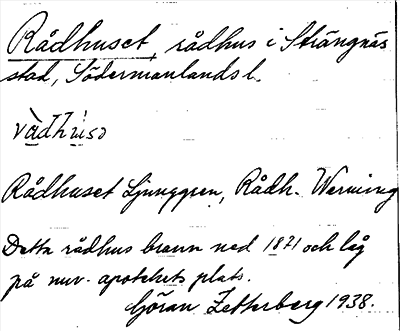 Rådhuset, rådhus i Strängnäs
stad, Södermanlands l.
ràdhusə
Rådhuset Ljunggren, Rådh. Werming
Detta rådhus brann ned 1871 och låg
på nuv. apotekets plats.
Göran Zetterberg 1938.